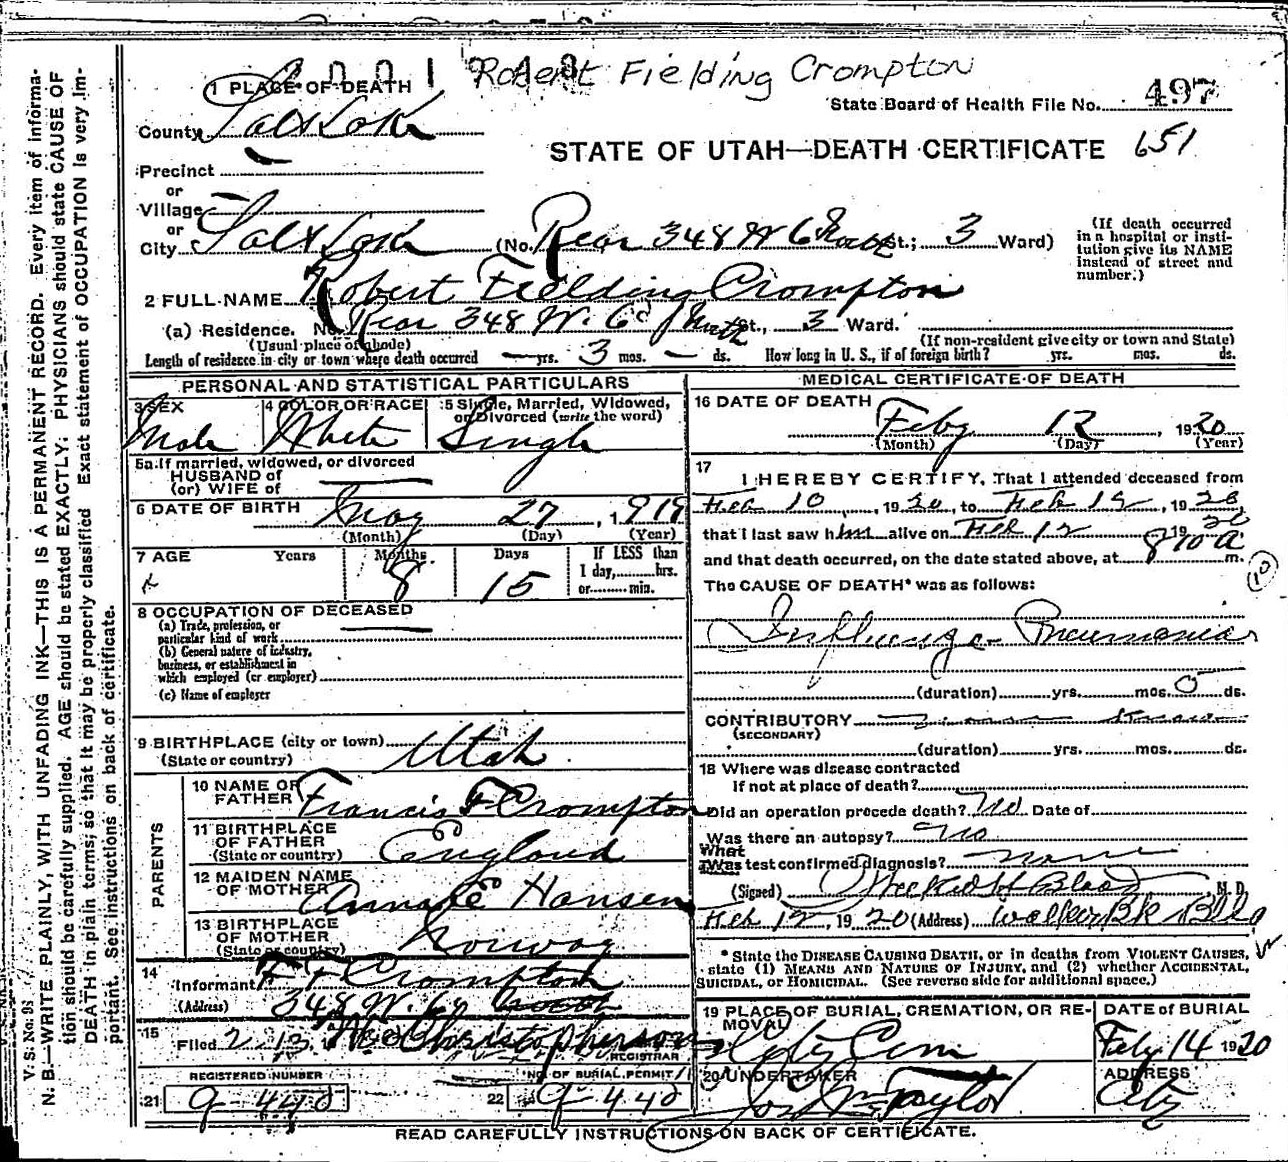 Robert Fielding Crompton
1 PLACE OF DEATH
State Board of Health File No. 497
County Salt Lake
STATE OF UTAH—DEATH CERTIFICATE 651
Precinct
or
Village
or
City Salt Lake (No. Rear 348 W 6 North St.; 3 Ward)
(If death occurred in a hospital or institution give its NAME instead of street and number.)
2 FULL NAME Robert Fielding Crompton
(a) Residence. No. Rear 348 W. 6 North St., 3 Ward.
(Usual place of abode) (If non-resident give city or town and State)
Length of residence in city or town where death occurred — yrs. 3 mos. — ds. How long in U. S., if of foreign birth? yrs. mos. ds.
PERSONAL AND STATISTICAL PARTICULARS
3 SEX Male
4 COLOR OR RACE White
5 Single, Married, Widowed, or Divorced (write the word) Single
5a If married, widowed, or divorced
HUSBAND of
(or) WIFE of
6 DATE OF BIRTH May 27, 1919
(Month) (Day) (Year)
7 AGE Years Months Days If LESS than
8 15 1 day,......hrs.
or......min.
8 OCCUPATION OF DECEASED
(a) Trade, profession, or
particular kind of work
(b) General nature of industry,
business, or establishment in
which employed (or employer)
(c) Name of employer
9 BIRTHPLACE (city or town) Utah
(State or country)
PARENTS
10 NAME OF FATHER Francis F Crompton
11 BIRTHPLACE OF FATHER England
(State or country)
12 MAIDEN NAME OF MOTHER Anna E Hansen
13 BIRTHPLACE OF MOTHER Norway
(State or country)
14 Informant F F Crompton
(Address) 348 W. 6
15 Filed 2-13, Christopherson
REGISTRAR
REGISTERED NUMBER NO. OF BURIAL PERMIT
21 22
MEDICAL CERTIFICATE OF DEATH
16 DATE OF DEATH Feby 12, 1920
(Month) (Day) (Year)
17 I HEREBY CERTIFY, That I attended deceased from
Feb 10, 1920, to Feb 12, 1920
that I last saw him alive on Feb 12 1920
and that death occurred, on the date stated above, at 8 10 a m.
(10)
The CAUSE OF DEATH* was as follows:
Influenza - Pneumonia
(duration) yrs. mos. ds.
CONTRIBUTORY
(SECONDARY)
(duration) yrs. mos. ds.
18 Where was disease contracted
If not at place of death?
Did an operation precede death? No Date of
Was there an autopsy? No
What
Was test confirmed diagnosis? none
(Signed) M. D.
Feb 12, 1920 (Address) Walker Bk Bldg
* State the DISEASE CAUSING DEATH, or in deaths from VIOLENT CAUSES,
state (1) MEANS AND NATURE OF INJURY, and (2) whether ACCIDENTAL,
SUICIDAL, or HOMICIDAL. (See reverse side for additional space.)
19 PLACE OF BURIAL, CREMATION, OR REMOVAL City Cem
DATE of BURIAL Feby 14 1920
20 UNDERTAKER Taylor
ADDRESS City
READ CAREFULLY INSTRUCTIONS ON BACK OF CERTIFICATE.
N. B.—WRITE PLAINLY, WITH UNFADING INK—THIS IS A PERMANENT RECORD. Every item of informa-
tion should be carefully supplied. AGE should be stated EXACTLY. PHYSICIANS should state CAUSE OF
DEATH in plain terms, so that it may be properly classified. Exact statement of OCCUPATION is very im-
portant. See instructions on back of certificate.